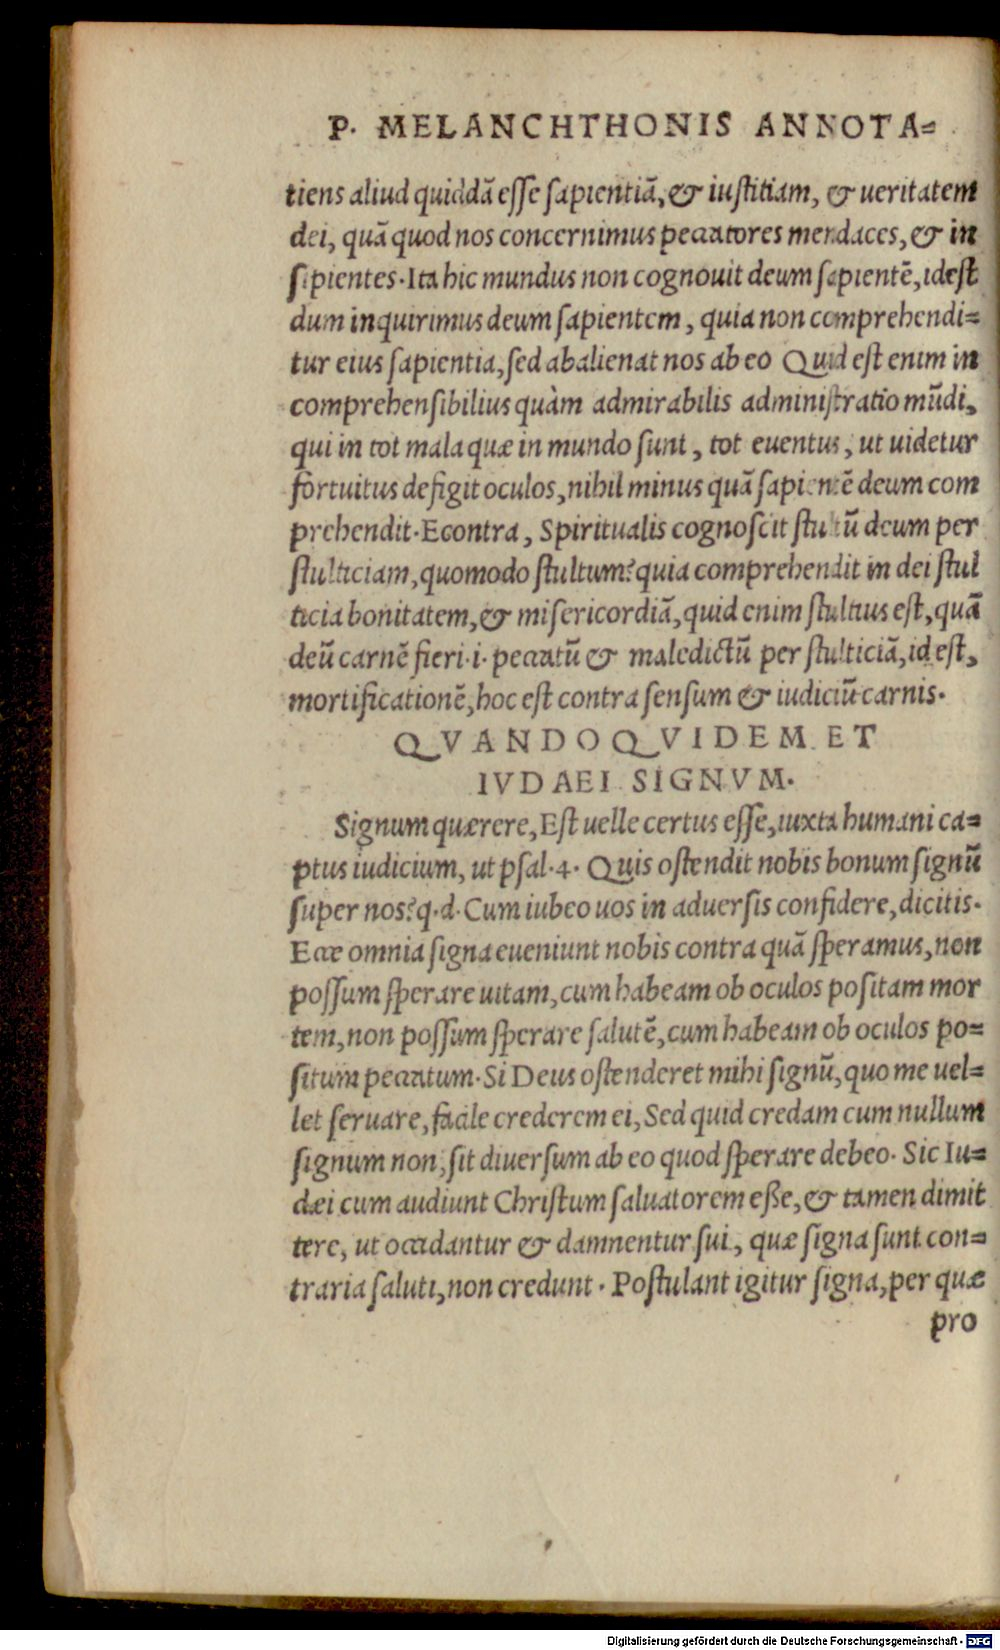 P. MELANCHTHONIS ANNOTA=
tiens aliud quiddã esse sapientiã, & iustitiam, & ueritatem
dei, quã quod nos concernimus peccatores mendaces, & in
sipientes. Ita hic mundus non cognouit deum sapientẽ, idest
dum inquirimus deum sapientem, quia non comprehendi=
tur eius sapientia, sed abalienat nos ab eo Quid est enim in
comprehensibilius quàm admirabilis administratio mũdi,
qui in tot mala quæ in mundo sunt, tot euentus, ut uidetur
fortuitus defigit oculos, nihil minus quã sapientẽ deum com
prehendit. Econtra, Spiritualis cognoscit stultũ deum per
stulticiam, quomodo stultum? quia comprehendit in dei stul
ticia bonitatem, & misericordiã, quid enim stultius est, quã
deũ carnẽ fieri .i. peccatũ & maledictũ per stulticiã, id est,
mortificationẽ, hoc est contra sensum & iudiciũ carnis.
QVANDOQVIDEM ET
IVDAEI SIGNVM.
Signum quærere, Est uelle certus esse, iuxta humani ca=
ptus iudicium, ut psal. 4. Quis ostendit nobis bonum signũ
super nos? q. d. Cum iubeo uos in aduersis confidere, dicitis.
Ecce omnia signa eueniunt nobis contra quã speramus, non
possum sperare uitam, cum habeam ob oculos positam mor
tem, non possum sperare salutẽ, cum habeam ob oculos po=
situm peccatum. Si Deus ostenderet mihi signũ, quo me uel=
let seruare, facile crederem ei, Sed quid credam cum nullum
signum non, sit diuersum ab eo quod sperare debeo. Sic Iu=
dæi cum audiunt Christum saluatorem eße, & tamen dimit
tere, ut occidantur & damnentur sui, quæ signa sunt con=
traria saluti, non credunt. Postulant igitur signa, per quæ
pro
Digitalisierung gefördert durch die Deutsche Forschungsgemeinschaft - DFG